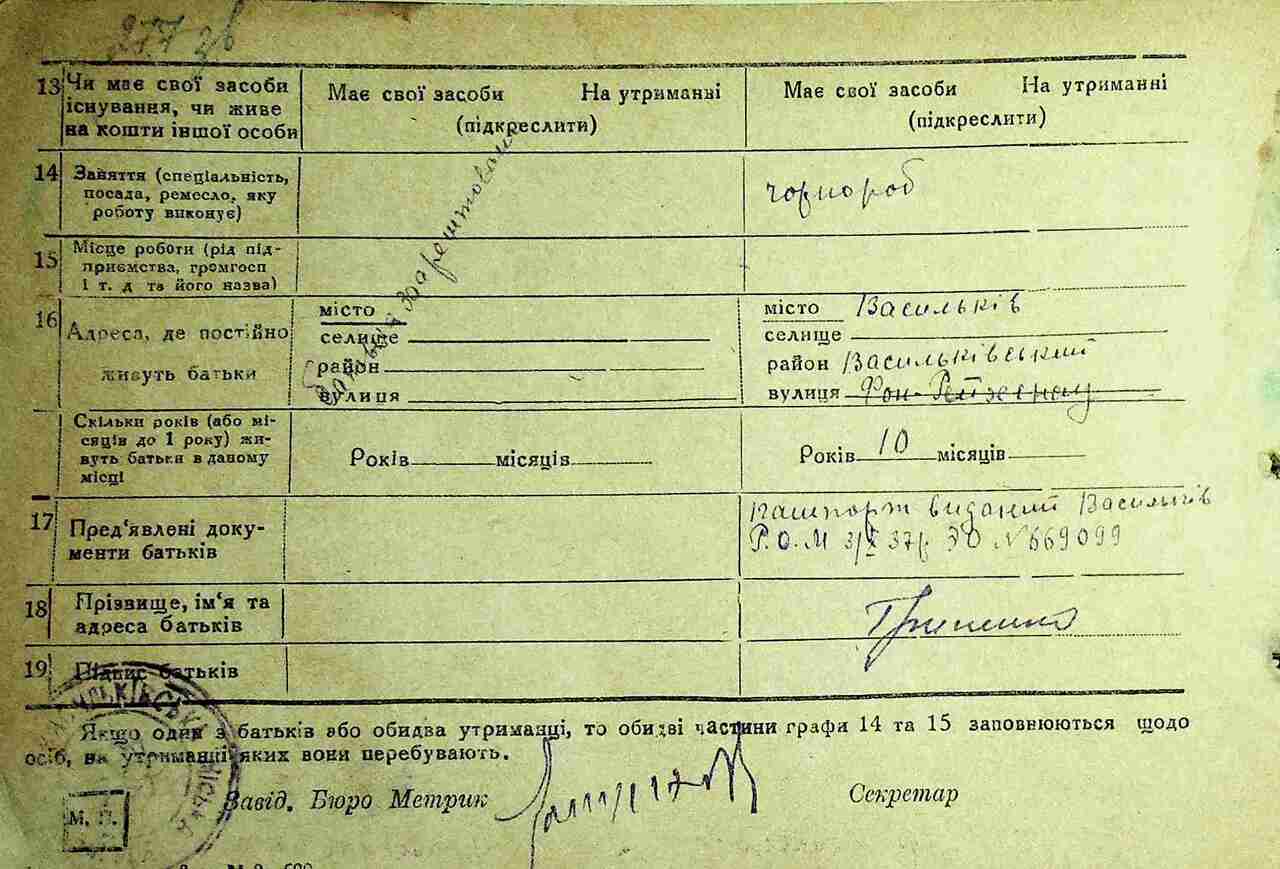 13 Чи має свої засоби існування, чи живе на кошти іншої особи
Має свої засоби На утриманні
(підкреслити)
Має свої засоби На утриманні
(підкреслити)
14 Заняття (спеціальність, посада, ремесло, яку роботу виконує)
чорнороб
15 Місце роботи (рід підприємства, громгосп і т. д та його назва)
16 Адреса, де постійно живуть батьки
місто
селище
район
вулиця
заарештован
місто Васильків
селище
район Васильківський
вулиця
Скільки років (або місяців до 1 року) живуть батьки в даному місці
Років місяців
Років 10 місяців
17 Пред‘явлені документи батьків
пашпорт виданий Васильків
Р.О.М 3/X 37р. ЭО № 669099
18 Прізвище, ім‘я та адреса батьків
19 Підпис батьків
Якщо один з батьків або обидва утриманці, то обидві частини графи 14 та 15 заповнюються щодо
осіб, на утриманні яких вони перебувають.
Завід. Бюро Метрик
Секретар
М. П.